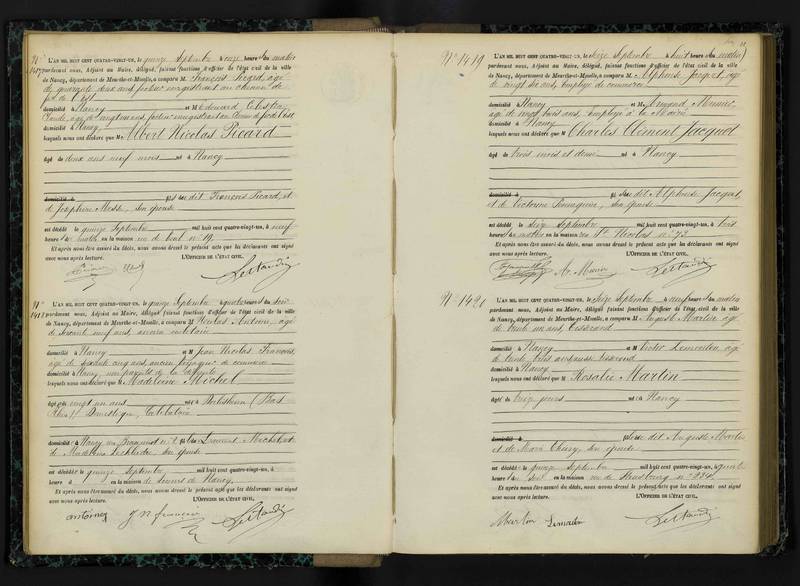 N°
1417
L'AN MIL HUIT CENT QUATRE-VINGT-UN, le quinze Septembre à onze heures du matin
pardevant nous, Adjoint au Maire, délégué, faisant fonctions d'officier de l'état civil de la ville
de Nancy, département de Meurthe-et-Moselle, a comparu M François Picard, âgé
de quarante deux ans, facteur enregistrant au chemin de
fer de l'Est
domicilié à Nancy et M Edouard Célestin
ans, facteur enregistrant au chemin de fer de l'Est
domicilié à Nancy
lesquels nous ont déclaré que M Albert Nicolas Picard
âgé de deux ans neuf mois né à Nancy
domicilié à fils du dit François Picard, et
de Joséphine Messe, son épouse
est décédé le quinze Septembre mil huit cent quatre-vingt-un, à neuf
heures du matin en la maison rue de n° 19
Et après nous être assuré du décès, nous avons dressé le présent acte que les déclarants ont signé
avec nous après lecture. L'OFFICIER DE L'ÉTAT CIVIL,
Picard
N°
1418
L'AN MIL HUIT CENT QUATRE-VINGT-UN, le quinze Septembre à quatre heures du soir
pardevant nous, Adjoint au Maire, délégué, faisant fonctions d'officier de l'état civil de la ville
de Nancy, département de Meurthe-et-Moselle, a comparu M Nicolas Antoine, âgé
de soixante neuf ans, ancien
domicilié à Nancy et M Jean Nicolas François
âgé de soixante cinq ans, ancien voyageur de commerce
domicilié à Nancy, non parents de la défunte
lesquels nous ont déclaré que M Madeleine Michel
âgée de vingt un ans née à Bilisheim (Bas
Rhin) Domestique, Célibataire
domiciliée à Nancy, rue n° 2 fille de Laurent Michel et
de Madeleine son épouse
est décédée le quinze Septembre mil huit cent quatre-vingt-un, à
heure en la maison de Secours de Nancy
Et après nous être assuré du décès, nous avons dressé le présent acte que les déclarants ont signé
avec nous après lecture. L'OFFICIER DE L'ÉTAT CIVIL,
antoine J N francois
N° 1419
L'AN MIL HUIT CENT QUATRE-VINGT-UN, le seize Septembre à huit heures du matin
pardevant nous, Adjoint au Maire, délégué, faisant fonctions d'officier de l'état civil de la ville
de Nancy, département de Meurthe-et-Moselle, a comparu M Alphonse Jacquot, âgé
de vingt six ans, employé de commerce
domicilié à Nancy et M Armand Meunier
âgé de vingt trois ans, Employé à la Mairie
domicilié à Nancy
lesquels nous ont déclaré que M Charles Clément Jacquot
âgé de trois mois et demi né à Nancy
domicilié à fils du dit Alphonse Jacquot,
et de Victorine son épouse
est décédé le seize Septembre mil huit cent quatre-vingt-un, à trois
heures du matin en la maison rue St Nicolas n° 72
Et après nous être assuré du décès, nous avons dressé le présent acte que les déclarants ont signé
avec nous après lecture. L'OFFICIER DE L'ÉTAT CIVIL,
N° 1420
L'AN MIL HUIT CENT QUATRE-VINGT-UN, le seize Septembre à neuf heures du matin
pardevant nous, Adjoint au Maire, délégué, faisant fonctions d'officier de l'état civil de la ville
de Nancy, département de Meurthe-et-Moselle, a comparu M Auguste Martin âgé
de trente un ans, Tisserand
domicilié à Nancy et M Victor Lemoitin, âgé
de trente trois ans, aussi tisserand
domicilié à Nancy
lesquels nous ont déclaré que M Rosalie Martin
âgée de treize jours née à Nancy
domicilié à fille de dit Auguste Martin
et de Marie son épouse
est décédée le quinze Septembre mil huit cent quatre-vingt-un, à quatre
heures du soir en la maison rue de Strasbourg n° 224
Et après nous être assuré du décès, nous avons dressé le présent acte que les déclarants ont signé
avec nous après lecture. L'OFFICIER DE L'ÉTAT CIVIL,
Martin Lemoitin